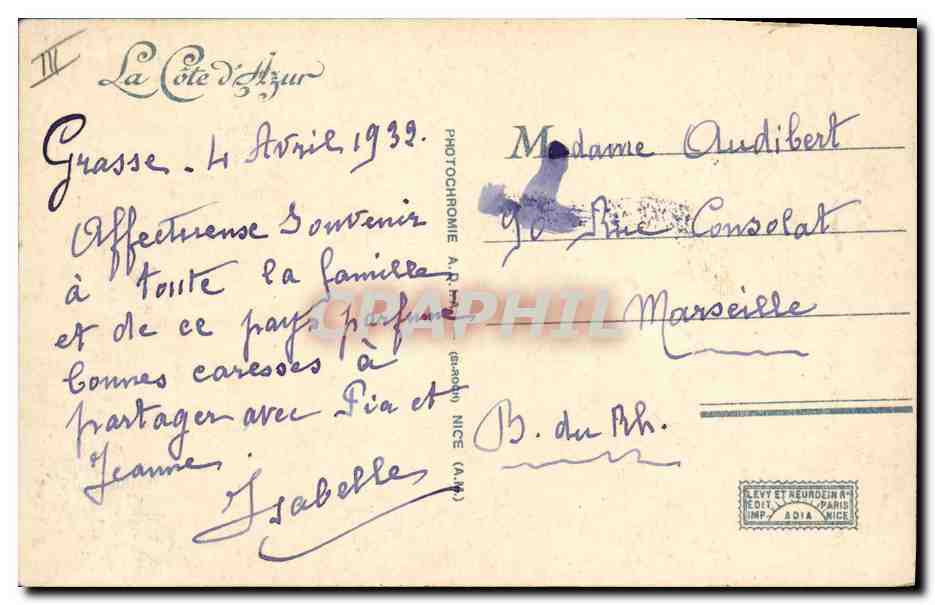 IV
La Côte d'Azur
Grasse - 4 Avril 1932.
Affectueuse Souvenir
à toute la famille
et de ce pays parfumé
bonnes caresses à
partager avec Pia et
Jeanne.
Isabelle
PHOTOCHROMIE A.D.I.A. (St-ROCH) NICE (A.M.)
Madame Audibert
90 Rue Consolat
Marseille
B. du Rh.
CPAPHIL
LEVY ET NEURDEIN Rs
EDIT. PARIS
IMP. ADIA NICE